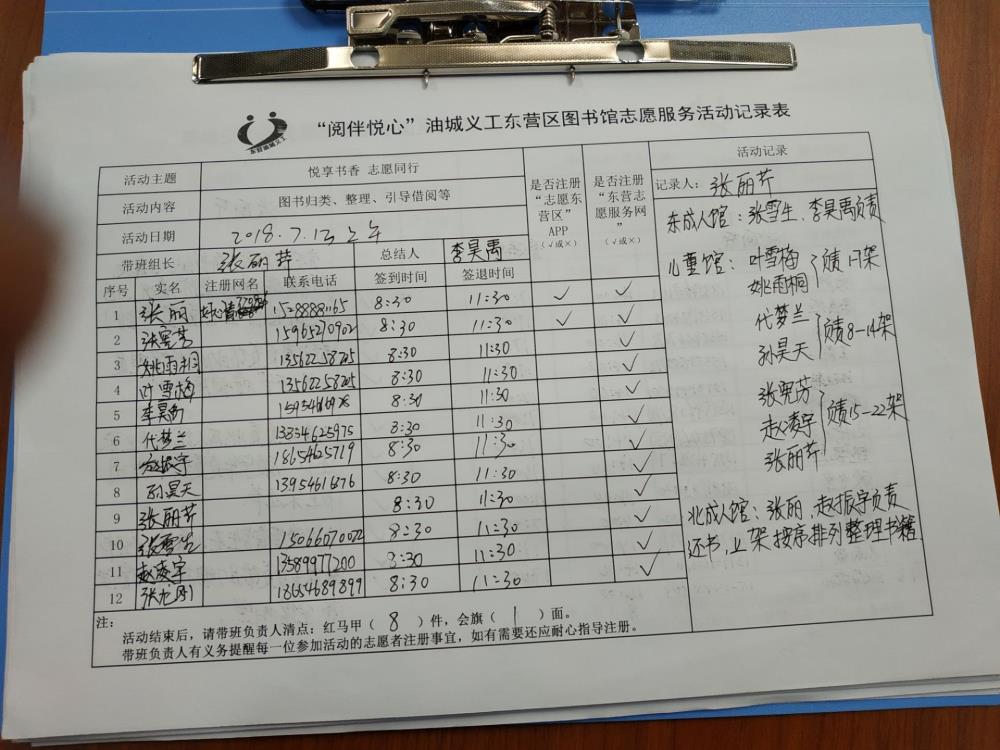 东营油城义工
“阅伴悦心”油城义工东营区图书馆志愿服务活动记录表
活动主题 悦享书香 志愿同行
活动内容 图书归类、整理、引导借阅等
活动日期 2018.7.13上午
带班组长 张丽芹 总结人 李昊禹
是否注册“志愿东营区”APP（√或×）
是否注册“东营志愿服务网”（√或×）
序号 实名 注册网名 联系电话 签到时间 签退时间
1 张丽 8:30 11:30 √ √
2 15965270902 8:30 11:30 √ √
3 姚雨桐 13562258725 8:30 11:30 √
4 叶雪梅 13562258725 8:30 11:30 √
5 8:30 11:30 √
6 代梦兰 13334625975 8:30 11:30 √
7 18654625719 8:30 11:30 √
8 孙昊天 8:30 11:30 √
9 张丽芹 8:30 11:30 √
10 张雪生 15066070022 8:30 11:30 √
11 赵凌宇 13589977200 8:30 11:30 √
12 18654689899 8:30 11:30 √
活动记录
记录人：张丽芹
东成人馆：张雪生、李昊禹负责
儿童馆：叶雪梅
姚雨桐 负责1-7架
代梦兰
孙昊天 负责8-14架
张宪芳
赵凌宇 负责15-22架
张丽芹
北成人馆：张丽、赵振宇负责
还书，上架按序排列整理书籍
注：
活动结束后，请带班负责人清点：红马甲（ 8 ）件，会旗（ 1 ）面。
带班负责人有义务提醒每一位参加活动的志愿者注册事宜，如有需要还应耐心指导注册。